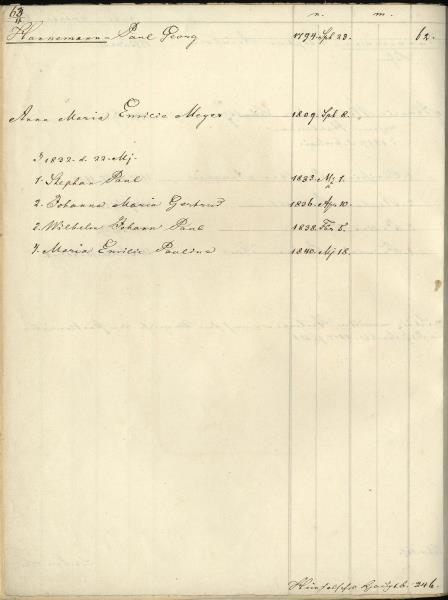 63
n. m.
Hannemann Paul Georg 1794. Spb 23. 62.
Anna Maria Emilie Meyer 1809. Spb 8.
1832. d. 22. Mj.
1. Stephan Paul 1833. Mj 1.
2. Johanna Maria Gertrud 1836. Ap. 10.
3. Wilhelm Johann Paul 1838. Fbr 5.
4. Maria Emilie Pauline 1840. Mj 18.
246.